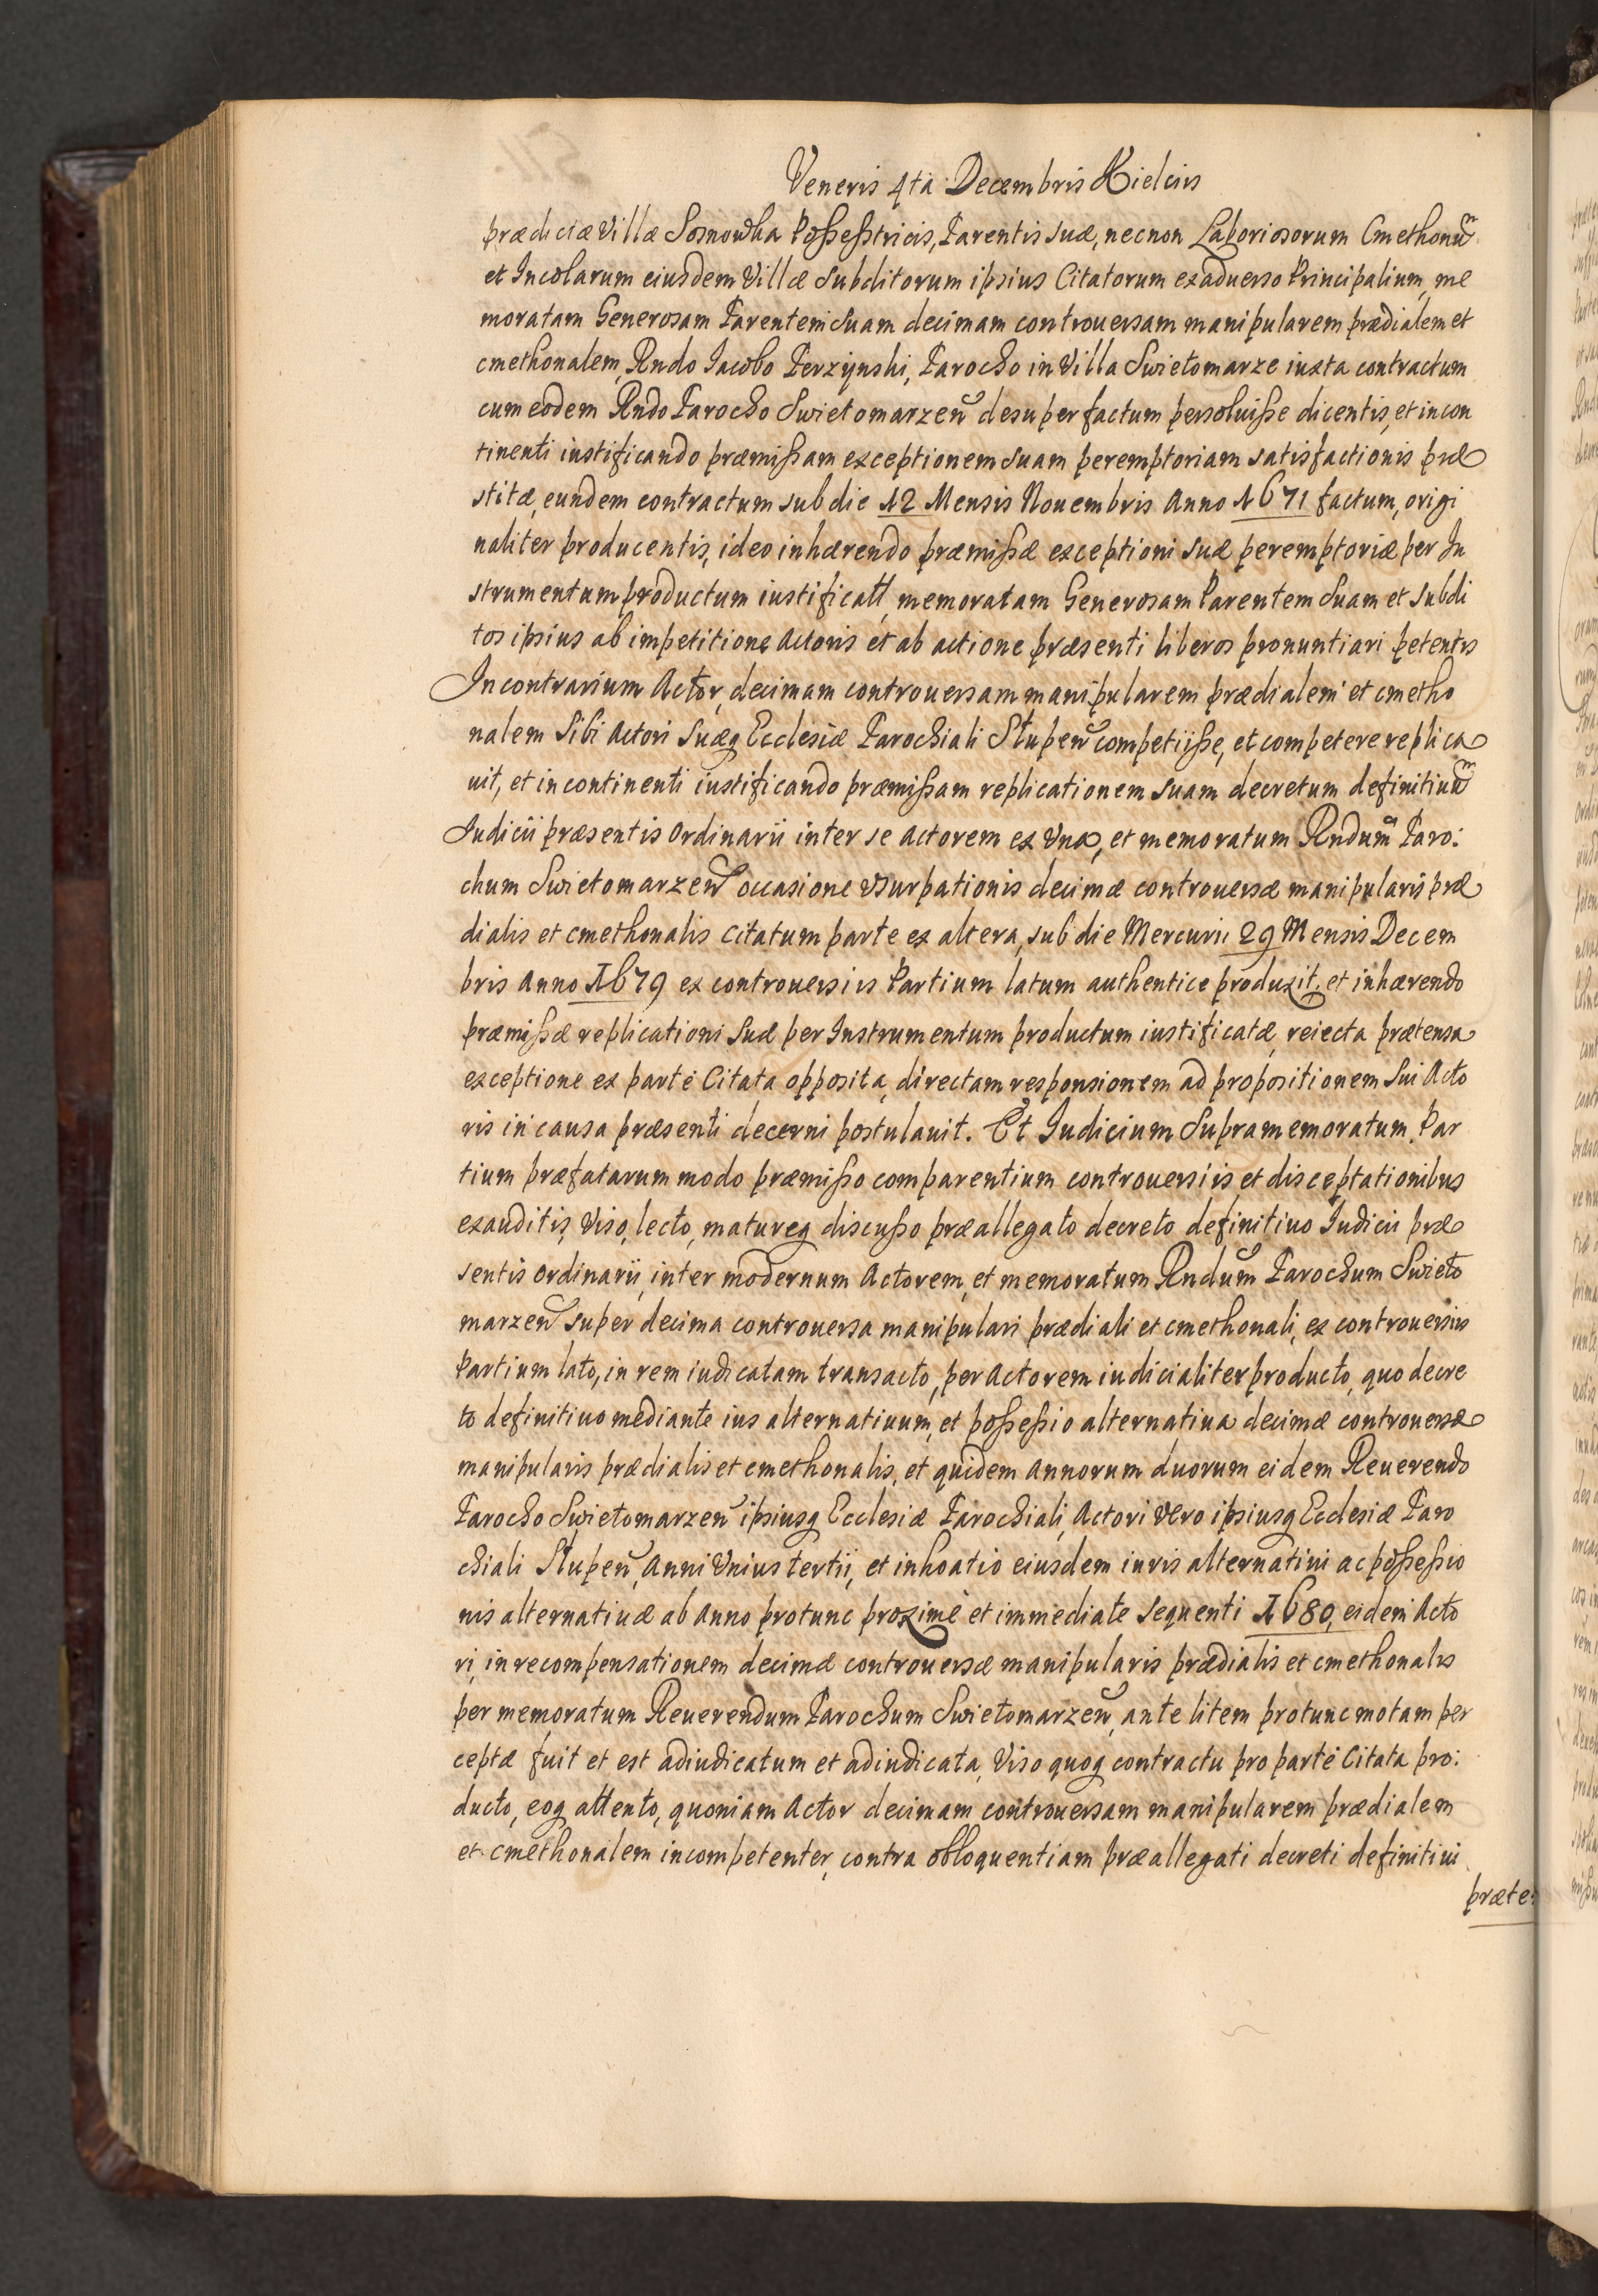 Veneris 4ta Decembris Kielciis
prædictæ Villæ Sosnowka Poßeßtricis, Parentis suæ, necnon Laboriosorum Cmethonũ
et Incolarum eiusdem Villæ Subditorum ipsius Citatorum exaduerso Principalium, me
moratam Generosam Parentem Suam decimam controuersam manipularem prædialem et
cmethonalem, Rndo Iacobo Perzynski, Parocho in Villa Swietomarze iuxta contractum
cum eodem Rndo Parocho Swietomarzeñ desuper factum persoluiße dicentis, et incon
tinenti iustificando præmißam exceptionem suam peremptoriam satisfactionis præ
stitæ, eundem contractum sub die 12 Mensis Nouembris Anno 1671 factum, origi
naliter producentis, ideo inhærendo præmißæ exceptioni suæ peremptoriæ per In
strumentum productum iustificatt, memoratam Generosam Parentem Suam et subdi
tos ipsius ab impetitione Actoris et ab actione præsenti liberos pronuntiari petentis
In contrarium Actor, decimam controuersam manipularem prædialem et cmetho
nalem Sibi Actori Suæq Ecclesiæ Parochiali Slupeñ competijße, et competere replica
uit, et incontinenti iustificando præmißam replicationem suam decretum definitiuũ
Iudicii præsentis Ordinarii inter se Actorem ex Vna, et memoratum Rndum Paro:
chum Swietomarzeñ occasione Vsurpationis decimæ controuersæ manipularis præ
dialis et cmethonalis Citatum parte ex altera, sub die Mercurii 29 Mensis Decem
bris Anno 1679 ex controuersiis Partium latum authentice produxit, et inhærendo
præmißæ replicationi Suæ per Instrumentum productum iustificatæ, reiecta prætensa
exceptione ex parte Citata opposita, directam responsionem ad propositionem sui Acto
ris in causa præsenti decerni postulauit. Et Iudicium Supramemoratum Par
tium præfatarum modo præmißo comparentium controuersiis et disceptationibus
exauditis, Viso, lecto, matureq discußo præallegato decreto definitiuo Iudicii præ
sentis Ordinarii, inter modernum Actorem, et memoratum Rndum Parochum Swieto
marzeñ super decima controuersa manipulari prædiali et cmethonali, ex controuersiis
Partium lato, in rem iudicatam transacto, per Actorem iudicialiter producto, quo decre
to definitiuo mediante ius alternatiuum, et poßeßio alternatiua decimæ controuersæ
manipularis prædialis et cmethonalis, et quidem annorum duorum eidem Reuerendo
Parocho Swietomarzeñ ipsiusq Ecclesiæ Parochiali, Actori Vero ipsiusq Ecclesiæ Paro
chiali Slupeñ, Anni Vnius tertii, et inhoatio eiusdem iuris alternatiui ac poßeßio
nis alternatiuæ ab Anno protunc proximè et immediate sequenti 1680, eidem Acto
ri, in recompensationem decimæ controuersæ manipularis prædialis et cmethonalis
per memoratum Reuerendum Parochum Swietomarzeñ, ante litem protunc motam per
ceptæ fuit et est adiudicatum et adiudicata, Viso quoq contractu pro parte Citata pro:
ducto, eoq attento, quoniam Actor decimam controuersam manipularem prædialem
et cmethonalem incompetenter, contra obloquentiam præallegati decreti definitiui
præte: